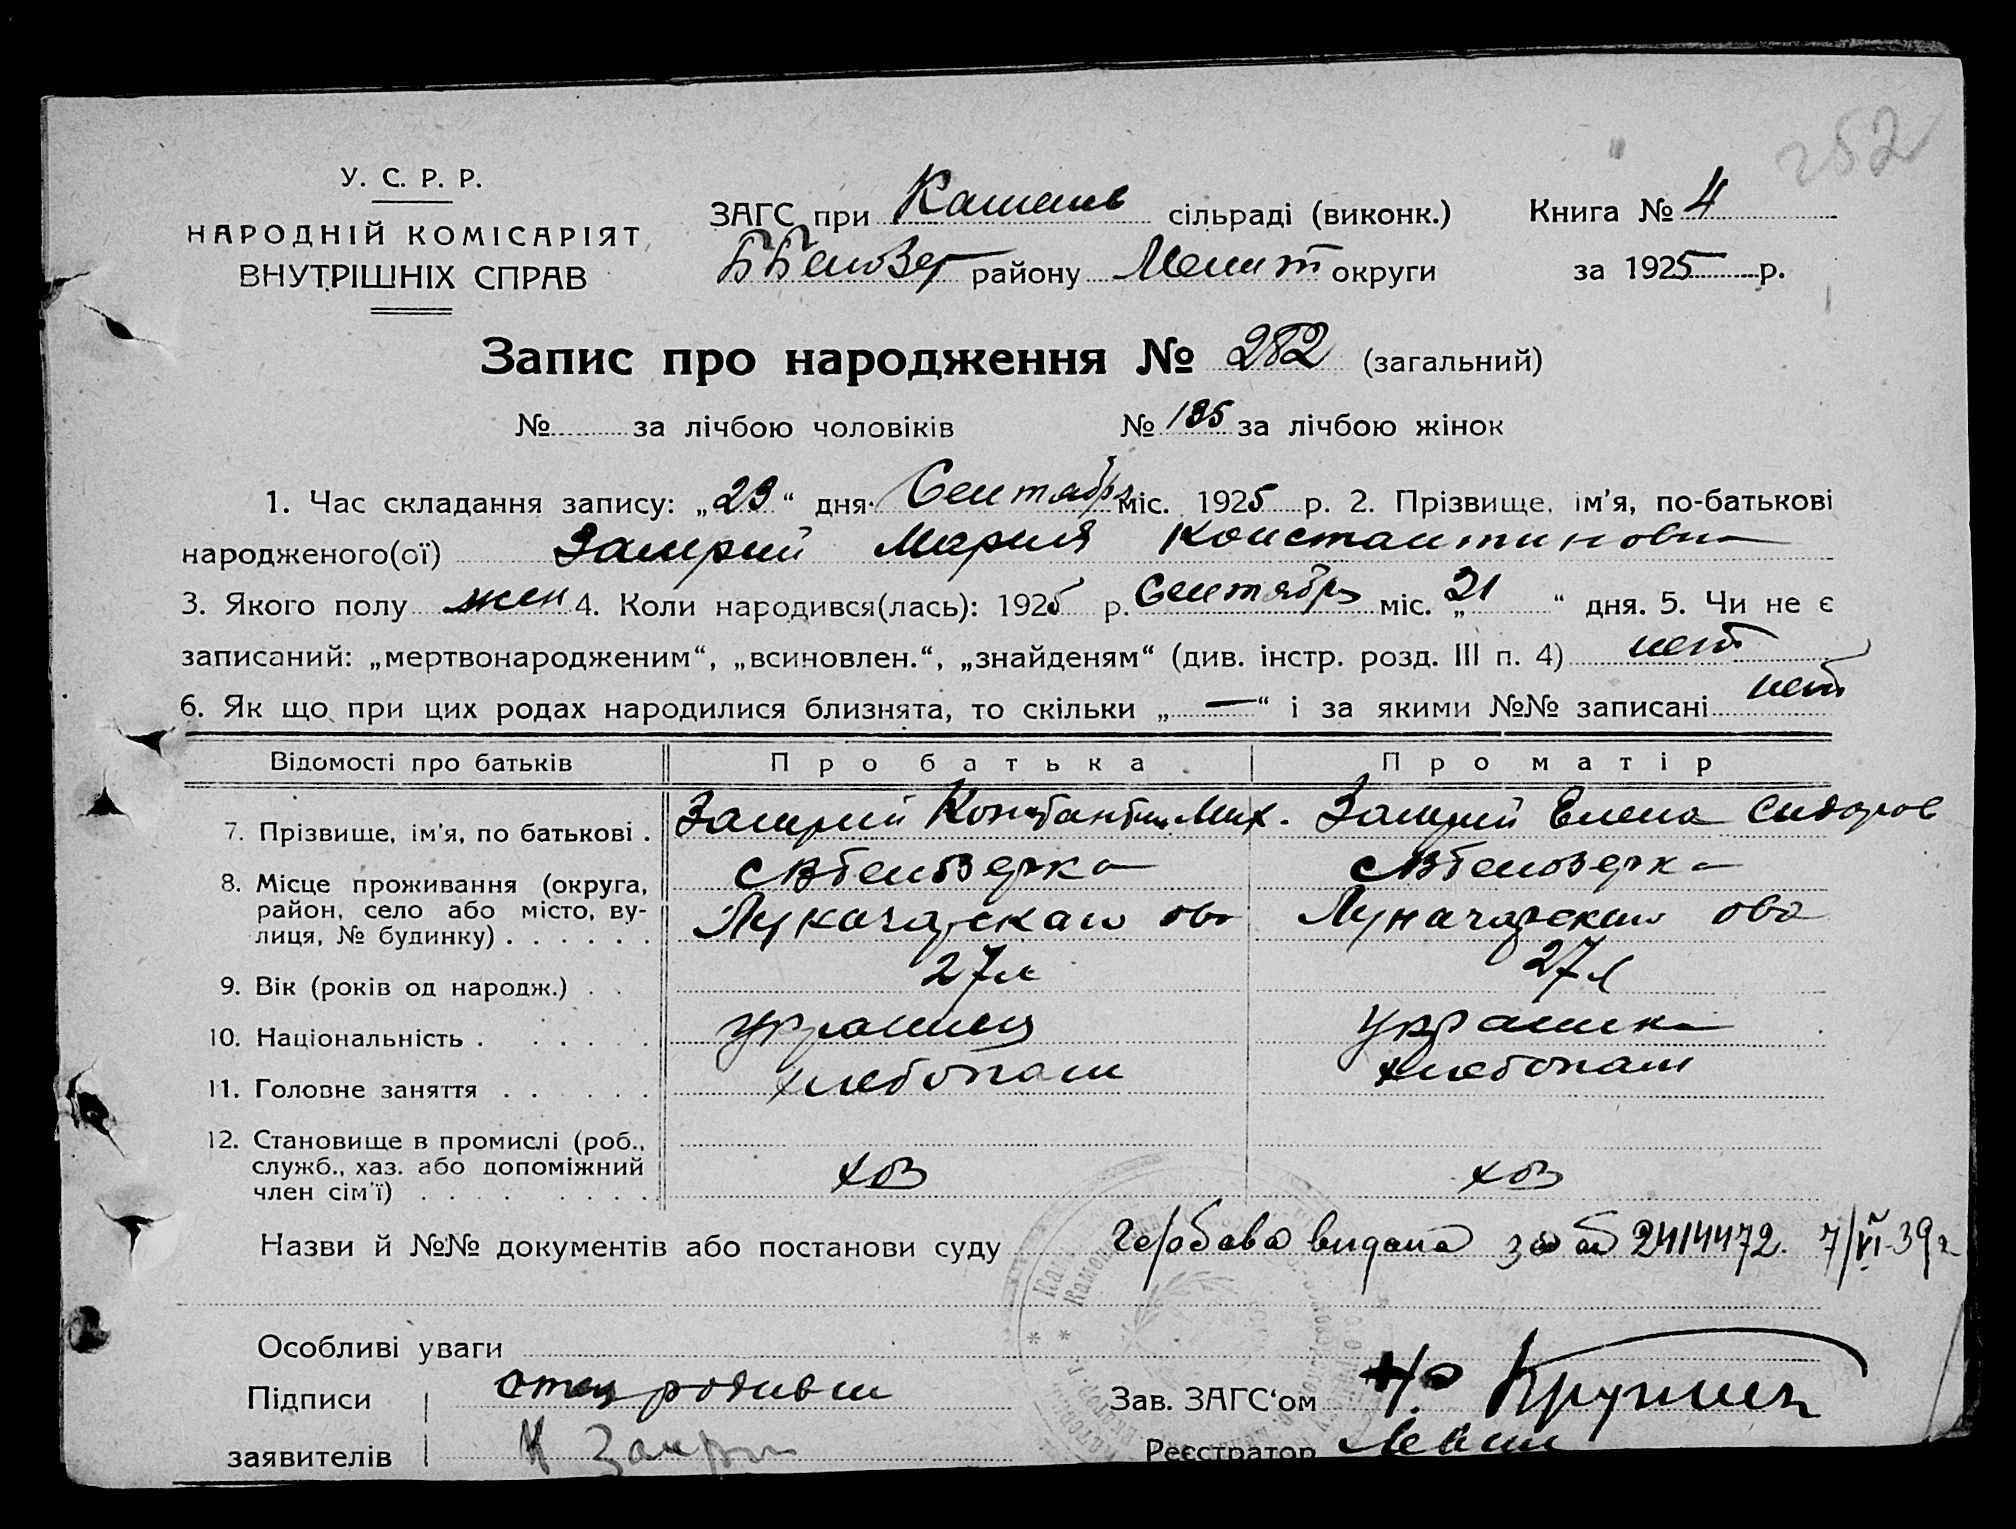 252
У. С. Р. Р.
НАРОДНІЙ КОМІСАРІЯТ
ВНУТРІШНІХ СПРАВ
ЗАГС при Каменс сільраді (виконк.)
ББелозер району Мелит округи
Книга № 4
за 1925 р.
Запис про народження № 282 (загальний)
№ за лічбою чоловіків № 135 за лічбою жінок
1. Час складання запису: „23“ дня Сентябр міс. 1925 р. 2. Прізвище, ім'я, по-батькові
народженого(ої) Замрий Мария Константиновна
3. Якого полу жен 4. Коли народився(лась): 1925 р. Сентябрь міс. „21“ дня. 5. Чи не є
записаний: „мертвонародженим“, „всиновлен.“, „знайденям“ (див. інстр. розд. III п. 4) нет
6. Як що при цих родах народилися близнята, то скільки „—“ і за якими №№ записані нет
Відомості про батьків Про батька Про матір
7. Прізвище, ім'я, по батькові . Замрий Константин Мих. Замрий Елена Сидоров
8. Місце проживання (округа, район, село або місто, вулиця, № будинку) . . . . . . с Вбелозерка с Вбелозерка
Луначарская Луначарская
9. Вік (років од народж.) . . 27 л 27 л
10. Національність . . . . . . украинец украинка
11. Головне заняття . . . . . . хлебопаш хлебопаш
12. Становище в промислі (роб., служб., хаз. або допоміжний член сім'ї) . . . . . . . . хоз хоз
Назви й №№ документів або постанови суду гербова видана за № 2414472. 7/VI-39 г
Особливі уваги
Підписи отец родивш Зав. ЗАГС'ом
заявителів К Замрий Реєстратор